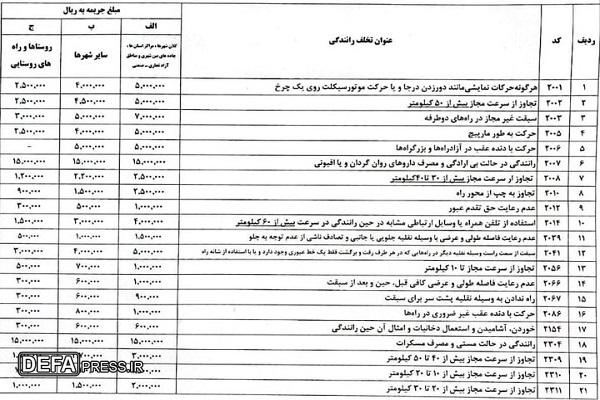 ردیف کد عنوان تخلف رانندگی مبلغ جریمه به ریال
الف ب ج
کلان شهرها، مراکز استان ها، جاده های بین شهری و مناطق آزاد تجاری - صنعتی
سایر شهرها
روستاها و راه های روستایی
۱ ۲۰۰۱ هرگونه حرکات نمایشی مانند دورزدن درجا و یا حرکت موتورسیکلت روی یک چرخ ۵،۰۰۰،۰۰۰ ۴،۰۰۰،۰۰۰ ۲،۵۰۰،۰۰۰
۲ ۲۰۰۲ تجاوز از سرعت مجاز بیش از ۵۰ کیلومتر ۵،۰۰۰،۰۰۰ ۴،۵۰۰،۰۰۰ ۲،۵۰۰،۰۰۰
۳ ۲۰۰۳ سبقت غیر مجاز در راه های دوطرفه ۷،۰۰۰،۰۰۰ ۵،۰۰۰،۰۰۰ ۳،۰۰۰،۰۰۰
۴ ۲۰۰۵ حرکت به طور مارپیچ ۵،۰۰۰،۰۰۰ ۴،۰۰۰،۰۰۰ ۲،۵۰۰،۰۰۰
۵ ۲۰۰۶ حرکت با دنده عقب در آزادراه‌ها و بزرگراه‌ها ۵،۰۰۰،۰۰۰ ۵،۰۰۰،۰۰۰ -
۶ ۲۰۰۷ رانندگی در حالت بی ارادگی و مصرف داروهای روان گردان و یا افیونی ۱۵،۰۰۰،۰۰۰ ۱۵،۰۰۰،۰۰۰ ۱۵،۰۰۰،۰۰۰
۷ ۲۰۰۸ تجاوز از سرعت مجاز بیش از ۳۰ تا ۴۰ کیلومتر ۲،۵۰۰،۰۰۰ ۲،۲۰۰،۰۰۰ ۱،۲۰۰،۰۰۰
۸ ۲۰۱۰ تجاوز به چپ از محور راه ۲،۵۰۰،۰۰۰ ۱،۵۰۰،۰۰۰ ۹۰۰،۰۰۰
۹ ۲۰۱۲ عدم رعایت حق تقدم عبور ۱،۰۰۰،۰۰۰ ۵۰۰،۰۰۰ ۳۰۰،۰۰۰
۱۰ ۲۰۱۴ استفاده از تلفن همراه یا وسایل ارتباطی مشابه در حین رانندگی در سرعت بیش از ۶۰ کیلومتر ۴،۰۰۰،۰۰۰ ۳،۰۰۰،۰۰۰ ۱،۵۰۰،۰۰۰
۱۱ ۲۰۳۹ عدم رعایت فاصله طولی و عرضی با وسیله نقلیه جلویی یا جانبی و تصادف ناشی از عدم توجه به جلو ۱،۵۰۰،۰۰۰ ۱،۰۰۰،۰۰۰ ۵۰۰،۰۰۰
۱۲ ۲۰۴۱ سبقت از سمت راست وسیله نقلیه دیگر در راه‌هایی که در هر طرف رفت و برگشت فقط یک خط عبوری وجود دارد و یا با استفاده از شانه راه ۵،۰۰۰،۰۰۰ ۴،۰۰۰،۰۰۰ ۳،۰۰۰،۰۰۰
۱۳ ۲۰۵۶ تجاوز از سرعت مجاز تا ۱۰ کیلومتر ۱،۰۰۰،۰۰۰ ۷۰۰،۰۰۰ ۵۰۰،۰۰۰
۱۴ ۲۰۶۶ عدم رعایت فاصله طولی و عرضی کافی قبل، حین و بعد از سبقت ۱،۰۰۰،۰۰۰ ۶۰۰،۰۰۰ ۳۰۰،۰۰۰
۱۵ ۲۰۶۷ راه ندادن به وسیله نقلیه پشت سر برای سبقت ۹۰۰،۰۰۰ ۶۰۰،۰۰۰ ۳۰۰،۰۰۰
۱۶ ۲۰۸۶ حرکت با دنده عقب غیر ضروری در راه‌ها ۱،۰۰۰،۰۰۰ ۸۰۰،۰۰۰ ۳۰۰،۰۰۰
۱۷ ۲۱۵۴ خوردن، آشامیدن و استعمال دخانیات و امثال آن حین رانندگی ۶۰۰،۰۰۰ ۶۰۰،۰۰۰ ۳۰۰،۰۰۰
۱۸ ۲۳۰۴ رانندگی در حالت مستی و مصرف مسکرات ۱۵،۰۰۰،۰۰۰ ۱۵،۰۰۰،۰۰۰ ۱۵،۰۰۰،۰۰۰
۱۹ ۲۳۰۹ تجاوز از سرعت مجاز بیش از ۴۰ تا ۵۰ کیلومتر ۳،۰۰۰،۰۰۰
۲۰ ۲۳۱۰ تجاوز از سرعت مجاز بیش از ۱۰ تا ۲۰ کیلومتر
۲۱ ۲۳۱۱ تجاوز از سرعت مجاز بیش از ۲۰ تا ۳۰ کیلومتر ۲،۰۰۰،۰۰۰ ۱،۵۰۰،۰۰۰ ۱،۰۰۰،۰۰۰
DEFAPRESS.IR